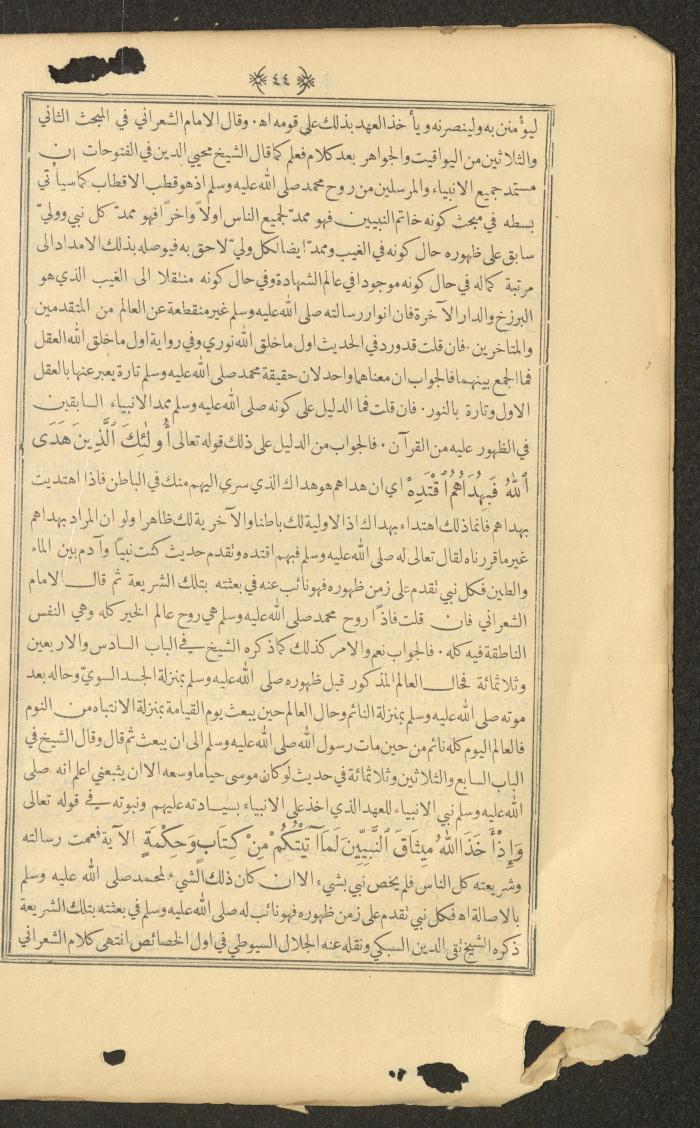 ٤٤
ليؤمنن به ولينصرنه ويأخذ العهد بذلك على قومه اه. وقال الامام الشعراني في المبحث الثاني
والثلاثين من اليواقيت والجواهر بعد كلام فعلم كما قال الشيخ محيي الدين في الفتوحات ان
مستمد جميع الانبياء والمرسلين من روح محمد صلى الله عليه وسلم اذ هو قطب الاقطاب كما سيأتي
بسطه في مبحث كونه خاتم النبيين فهو ممدّ لجميع الناس اولاً واخراً فهو ممدّ كل نبي ووليّ
سابق على ظهوره حال كونه في الغيب وممدّ ايضا لكل وليّ لاحق به فيوصله بذلك الامداد الى
مرتبة كماله في حال كونه موجودا في عالم الشهادة وفي حال كونه منتقلا الى الغيب الذي هو
البرزخ والدار الآخرة فان انوار رسالته صلى الله عليه وسلم غير منقطعة عن العالم من المتقدمين
والمتاخرين. فان قلت قد ورد في الحديث اول ما خلق الله نوري وفي رواية اول ما خلق الله العقل
فما الجمع بينهما فالجواب ان معناهما واحد لان حقيقة محمد صلى الله عليه وسلم تارة يعبر عنها بالعقل
الاول وتارة بالنور. فان قلت فما الدليل على كونه صلى الله عليه وسلم ممد الانبياء السابقين
في الظهور عليه من القرآن. فالجواب من الدليل على ذلك قوله تعالى أُولٰئِكَ الَّذِينَ هَدَى
اللهُ فَبِهُدَاهُمُ اقْتَدِهْ اي ان هداهم هو هداك الذي سرى اليهم منك في الباطن فاذا اهتديت
بهداهم فانما ذلك اهتداء بهداك اذ الاولية لك باطنا والآخرية لك ظاهرا ولو ان المراد بهداهم
غير ما قررناه لقال تعالى له صلى الله عليه وسلم فبهم اقتده وتقدم حديث كنت نبيا وآدم بين الماء
والطين فكل نبي تقدم على زمن ظهوره فهو نائب عنه في بعثته بتلك الشريعة ثم قال الامام
الشعراني فان قلت فاذًا روح محمد صلى الله عليه وسلم هي روح عالم الخير كله وهي النفس
الناطقة فيه كله. فالجواب نعم والامر كذلك كما ذكره الشيخ في الباب السادس والاربعين
وثلاثمائة فحال العالم المذكور قبل ظهوره صلى الله عليه وسلم بمنزلة الجسد السويّ وحاله بعد
موته صلى الله عليه وسلم بمنزلة النائم وحال العالم حين يبعث يوم القيامة بمنزلة الانتباه من النوم
فالعالم اليوم كله نائم من حين مات رسول الله صلى الله عليه وسلم الى ان يبعث ثم قال وقال الشيخ في
الباب السابع والثلاثين وثلاثمائة في حديث لو كان موسى حيا ما وسعه الا ان يتبعني اعلم انه صلى
الله عليه وسلم نبي الانبياء للعهد الذي اخذ على الانبياء بسيادته عليهم ونبوته في قوله تعالى
وَإِذْ أَخَذَ اللهُ مِيثَاقَ النَّبِيِّينَ لَمَا آتَيْتُكُمْ مِنْ كِتَابٍ وَحِكْمَةٍ الآية فعمت رسالته
وشريعته كل الناس فلم يخص نبي بشيء الا ان كان ذلك الشيء لمحمد صلى الله عليه وسلم
بالاصالة اه فكل نبي تقدم على زمن ظهوره فهو نائب له صلى الله عليه وسلم في بعثته بتلك الشريعة
ذكره الشيخ تقي الدين السبكي ونقله عنه الجلال السيوطي في اول الخصائص انتهى كلام الشعراني